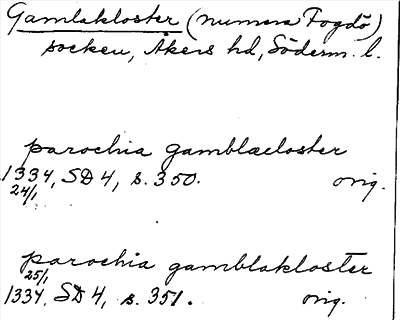 Gamlakloster (numera Fogdö)
socken, Åkers hd, Söderm. l.
parochia gamblæcloster
1334, SD 4, s. 350. orig.
24/1
parochia gamblakloster
25/1
1334, SD 4, s. 351. orig.